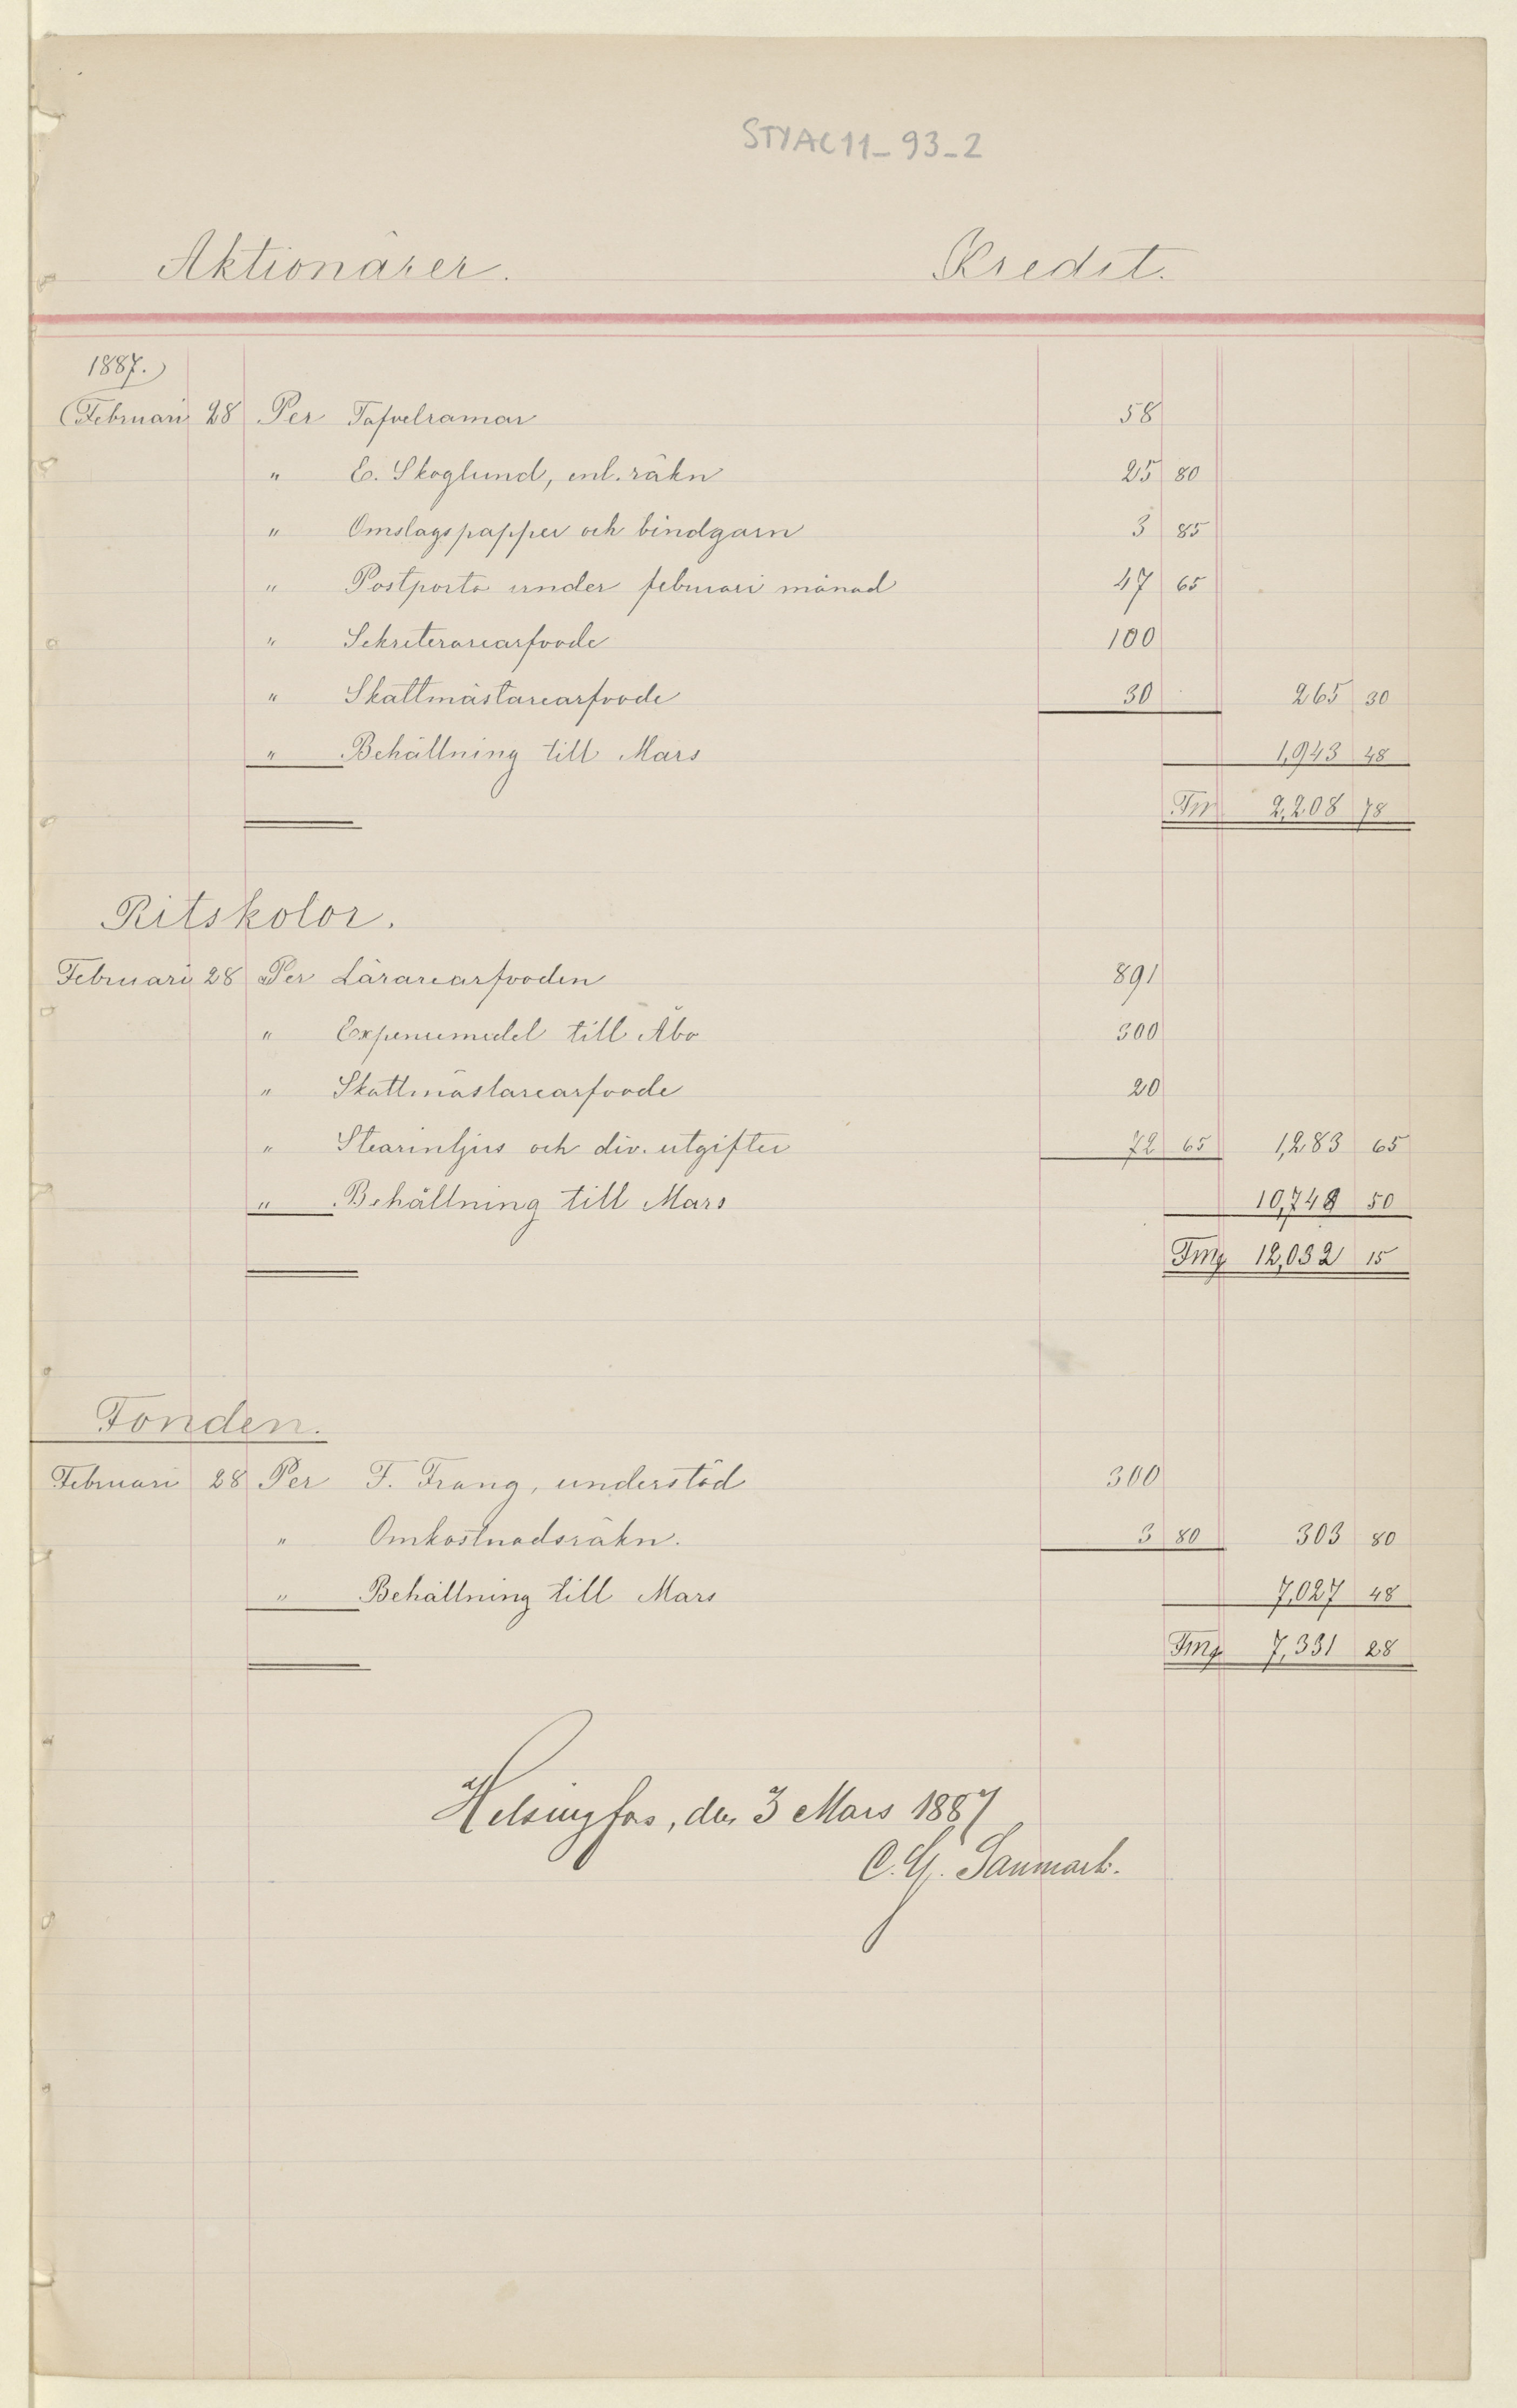 STYAC11_93_2
Aktionärer. Kredit.
1887.
Februari 28 Per Tafvelramar 58
" E. Skoglund, enl. räkn 25 80
" Omslagspapper och bindgarn 3 85
" Postporto under februari månad 47 65
" Sekreterarearfvode 100
" Skattmästarearfvode 30 265 30
" Behållning till Mars 1,943 48
Fm 2,208 78
Ritskolor.
Februari 28 Per Lärarearfvoden 891
" Expensmedel till Åbo 300
" Skattmästarearfvode 20
" Stearinljus och div. utgifter 72 65 1,283 65
" Behållning till Mars 10,748 50
Fmg 12,032 15
Fonden.
Februari 28 Per F. Frang, understöd 300
" Omkostnadsräkn. 3 80 303 80
" Behållning till Mars 7,027 48
Fmg 7,331 28
Helsingfors, den 3 Mars 1887
C. G. Sanmark.